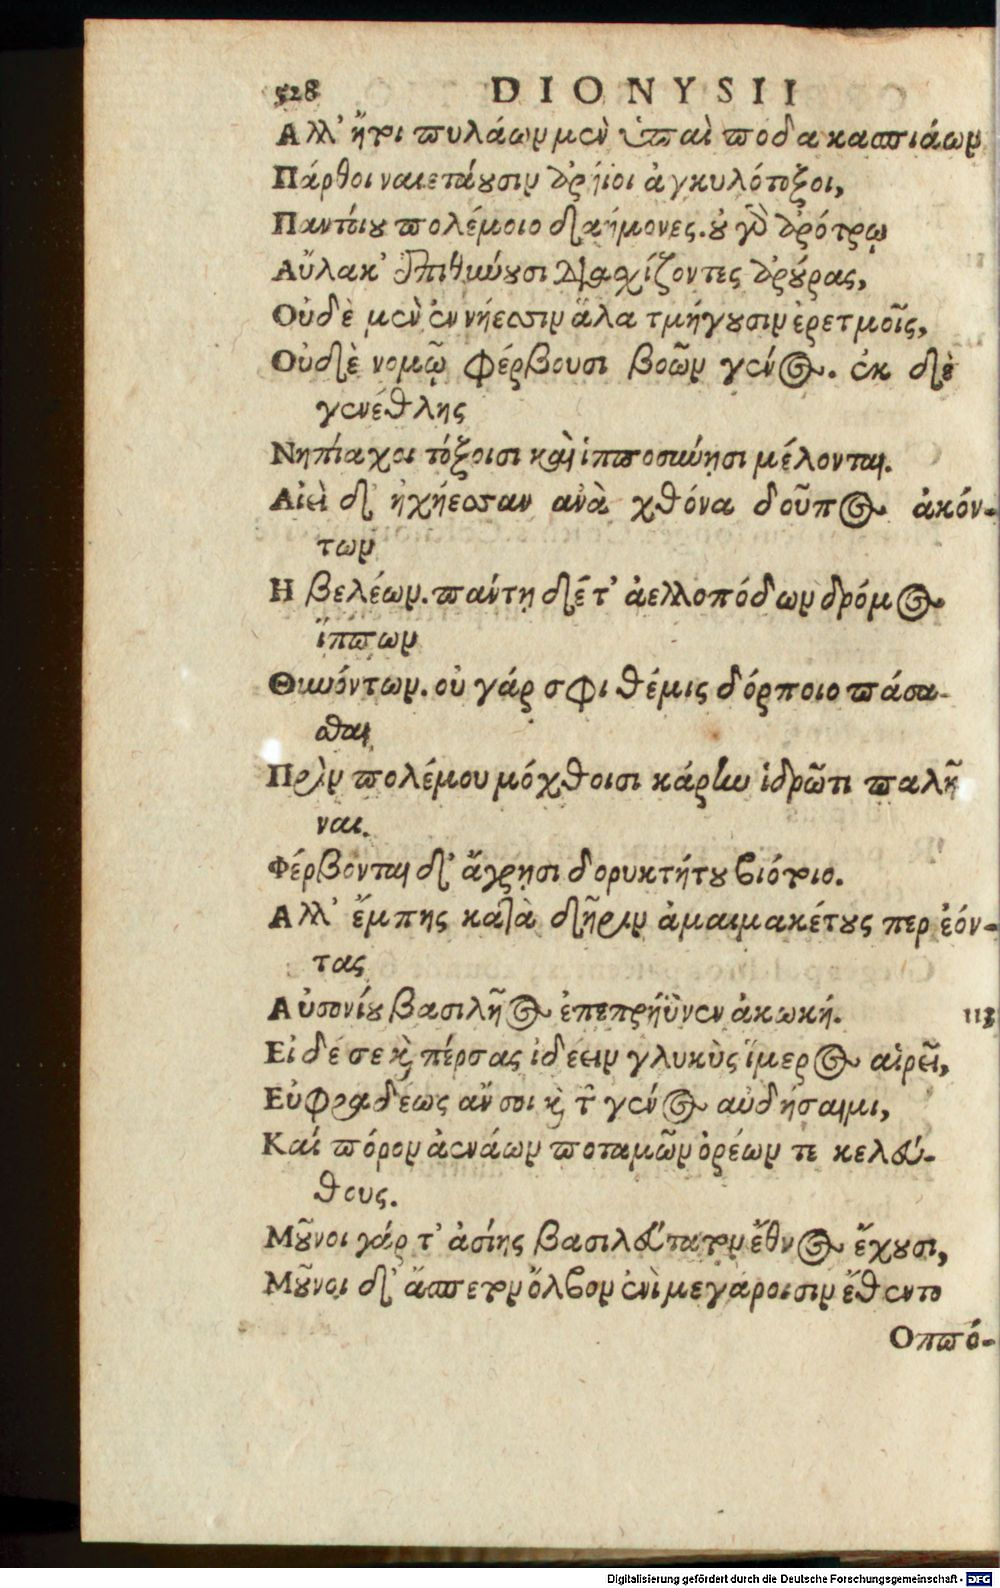 528 DIONYSII
Αλλ' ἤτοι πυλάων μὲν ὑπαὶ πόδα κασπιάων
Πάρθοι ναιετάουσιν ἀρήϊοι ἀγκυλότοξοι,
Παντοίου πολέμοιο δαήμονες. οὐ γὰρ ἀρότρῳ
Αὔλακ' ἐπιθύνουσι διασχίζοντες ἀρούρας,
Οὐδὲ μὲν ἐν νήεσσιν ἅλα τμήγουσιν ἐρετμοῖς,
Οὐδὲ νομῷ φέρβουσι βοῶν γένος. ἐκ δὲ
γενέθλης
Νηπίαχοι τόξοισι καὶ ἱπποσύνῃσι μέλονται.
Αἰεὶ δ' ἠχήεσσαν ἀνὰ χθόνα δοῦπος ἀκόν-
των
Η βελέων. πάντῃ δέ τ' ἀελλοπόδων δρόμος
ἵππων
Θυνόντων. οὐ γάρ σφι θέμις δόρποιο πάσα-
σθαι
Πρὶν πολέμου μόχθοισι κάρην ἱδρῶτι παλῆ
ναι.
Φέρβονται δ' ἄγρῃσι δορυκτήτου βιότοιο.
Αλλ' ἔμπης κατὰ δῆριν ἀμαιμακέτους περ ἐόν-
τας
Αὐσονίου βασιλῆος ἐπεπρήϋνεν ἀκωκή. 113
Εἰ δέ σε καὶ πέρσας ἰδέειν γλυκὺς ἵμερος αἱρεῖ,
Εὐφραδέως ἄν σοι καὶ τῶν γένος αὐδήσαιμι,
Καί πόρον ἀενάων ποταμῶν ὀρέων τε κελεύ-
θους.
Μοῦνοι γάρ τ' ἀσίης βασιλεύτατον ἔθνος ἔχουσι,
Μοῦνοι δ' ἄσπετον ὄλβον ἐνὶ μεγάροισιν ἔθεντο
Οππό-
Digitalisierung gefördert durch die Deutsche Forschungsgemeinschaft - DFG